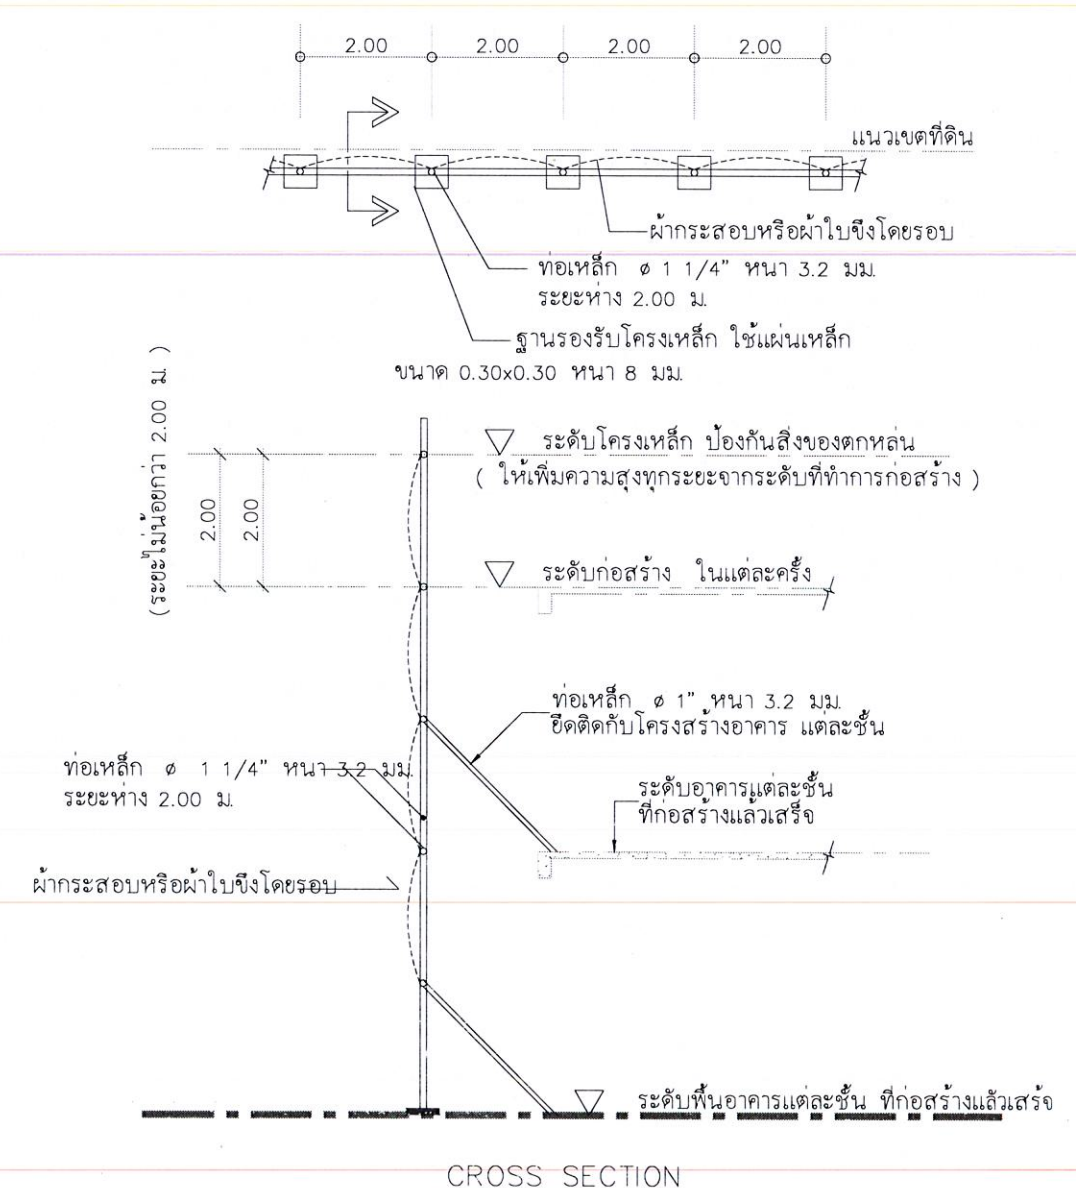 2.00 2.00 2.00 2.00
แนวเขตที่ดิน
ผ้ากระสอบหรือผ้าใบขึงโดยรอบ
ท่อเหล็ก ø 1 1/4" หนา 3.2 มม.
ระยะห่าง 2.00 ม.
ฐานรองรับโครงเหล็ก ใช้แผ่นเหล็ก
ขนาด 0.30x0.30 หนา 8 มม.
(ระยะไม่น้อยกว่า 2.00 ม.)
2.00
2.00
ระดับโครงเหล็ก ป้องกันสิ่งของตกหล่น
( ให้เพิ่มความสุงทุกระยะจากระดับที่ทำการก่อสร้าง )
ระดับก่อสร้าง ในแต่ละครั้ง
ท่อเหล็ก ø 1" หนา 3.2 มม.
ยึดติดกับโครงสร้างอาคาร แต่ละชั้น
ท่อเหล็ก ø 1 1/4" หนา 3.2 มม.
ระยะห่าง 2.00 ม.
ระดับอาคารแต่ละชั้น
ที่ก่อสร้างแล้วเสร็จ
ผ้ากระสอบหรือผ้าใบขึงโดยรอบ
ระดับพื้นอาคารแต่ละชั้น ที่ก่อสร้างแล้วเสร็จ
CROSS SECTION